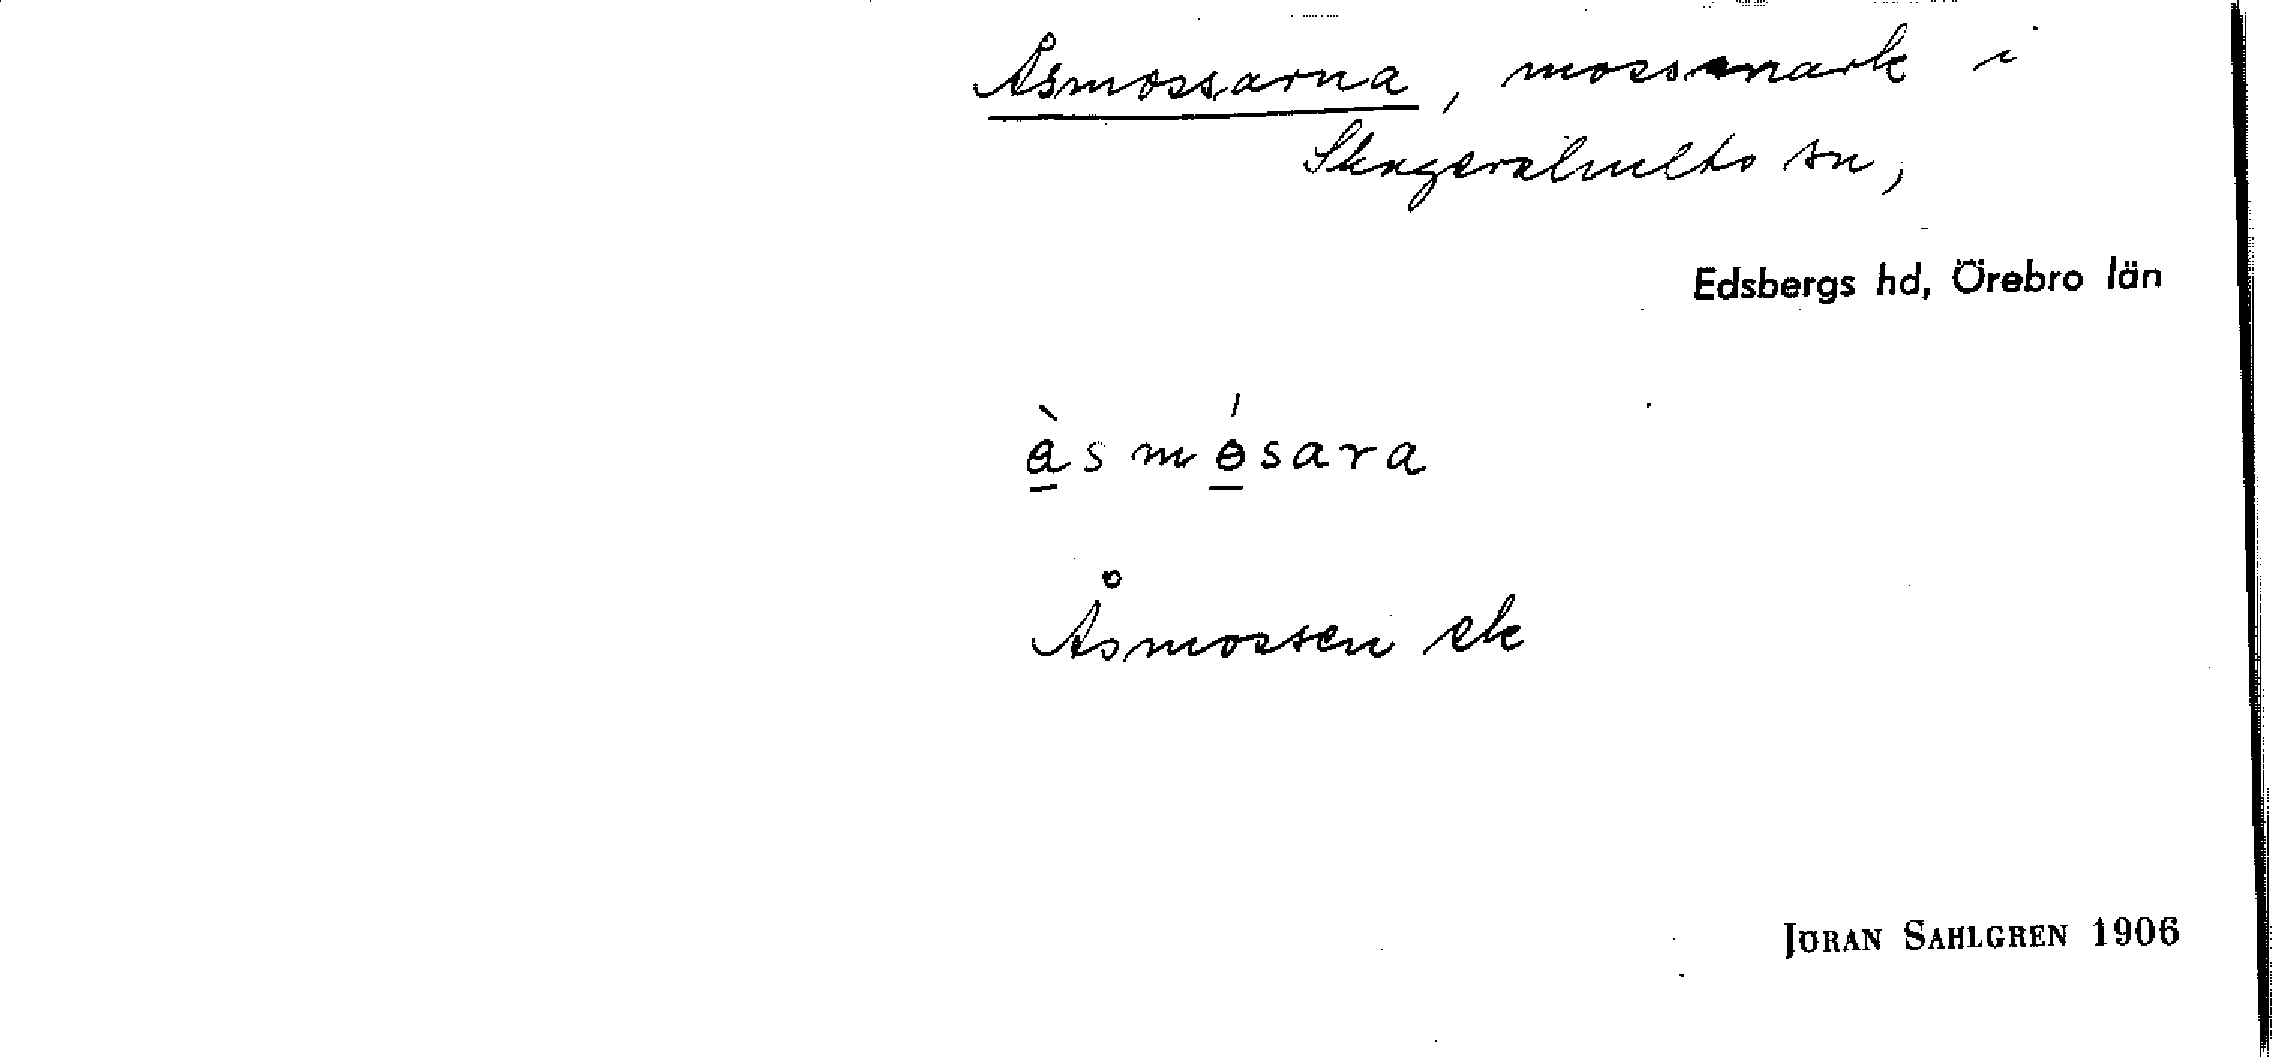 Åsmossarna, mossmark i
Skagershults sn,
Edsbergs hd, Örebro län
åsmosara
Åsmossen ek
JÖRAN SAHLGREN 1906